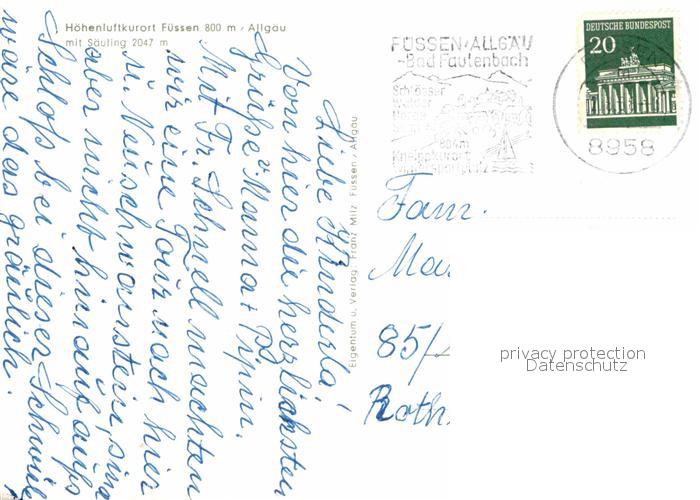 Höhenluftkurort Füssen 800 m / Allgäu
mit Säuling 2047 m
Liebe Kinderla!
Von hier die herzlichsten
Grüße Mama + Pipin.
Mit Fr. Schnell machten
wir eine Tour nach hier
u. Neuschwanstein, sind
aber nicht hinauf aufs
Schloß bei dieser Schwüle
wäre das gräulich.
Eigentum u. Verlag: Franz Milz, Füssen / Allgäu
FÜSSEN/ALLGÄU
-Bad Faulenbach
Schlösser
Wälder
804m
Kneippkurort
DEUTSCHE BUNDESPOST
20
8958
Fam.
85/
Roth.
privacy protection
Datenschutz